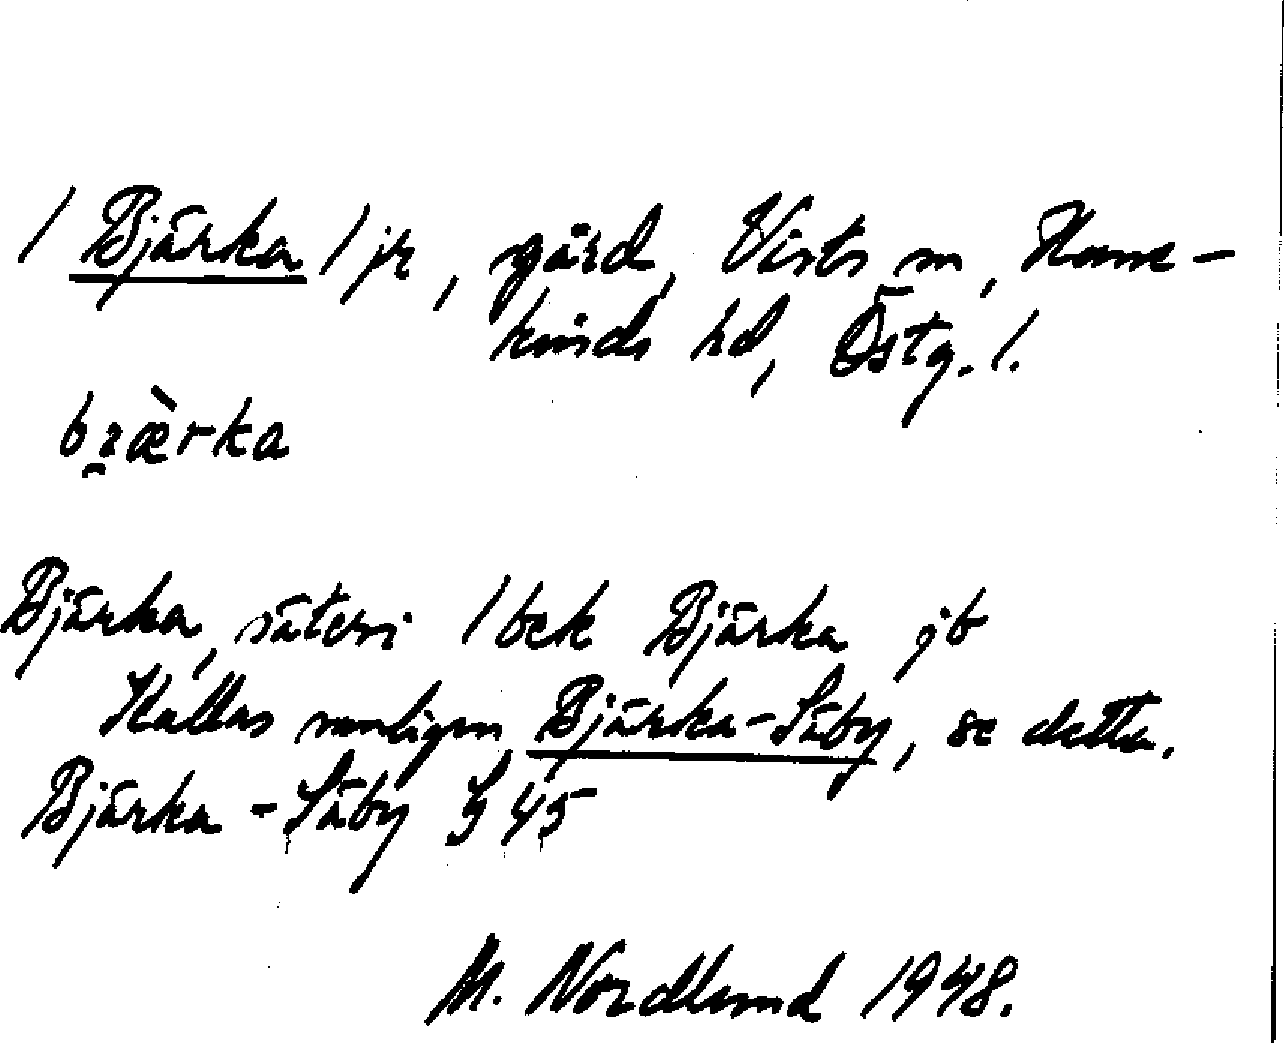 / Bjärka / jr, gård, Vists sn, Hane-
kinds hd, Östg. l.
bɀæ̀rka
Bjärka, säteri / bek Bjärka jb
Kallas vanligen Bjärka-Säby, se detta.
Bjärka-Säby G 45
M. Nordlund 1948.